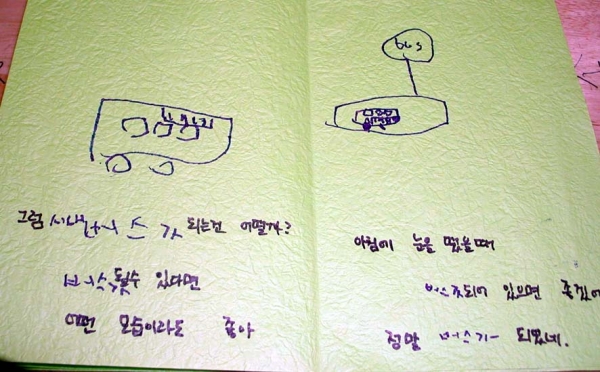 그럼 시내버스가 되는건 어떨까?
버스 될수 있다면
어떤 모습이라도 좋아
bus
아침에 눈을 떴을때
버스 되어 있으면 좋겠어
정말 버스가 되었네.